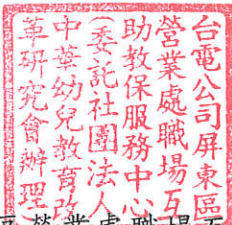 台電公司屏東區
營業處職場互
助教保服務中心
(委託社團法人
中華幼兒教育改
革研究會辦理)
營業處職場互